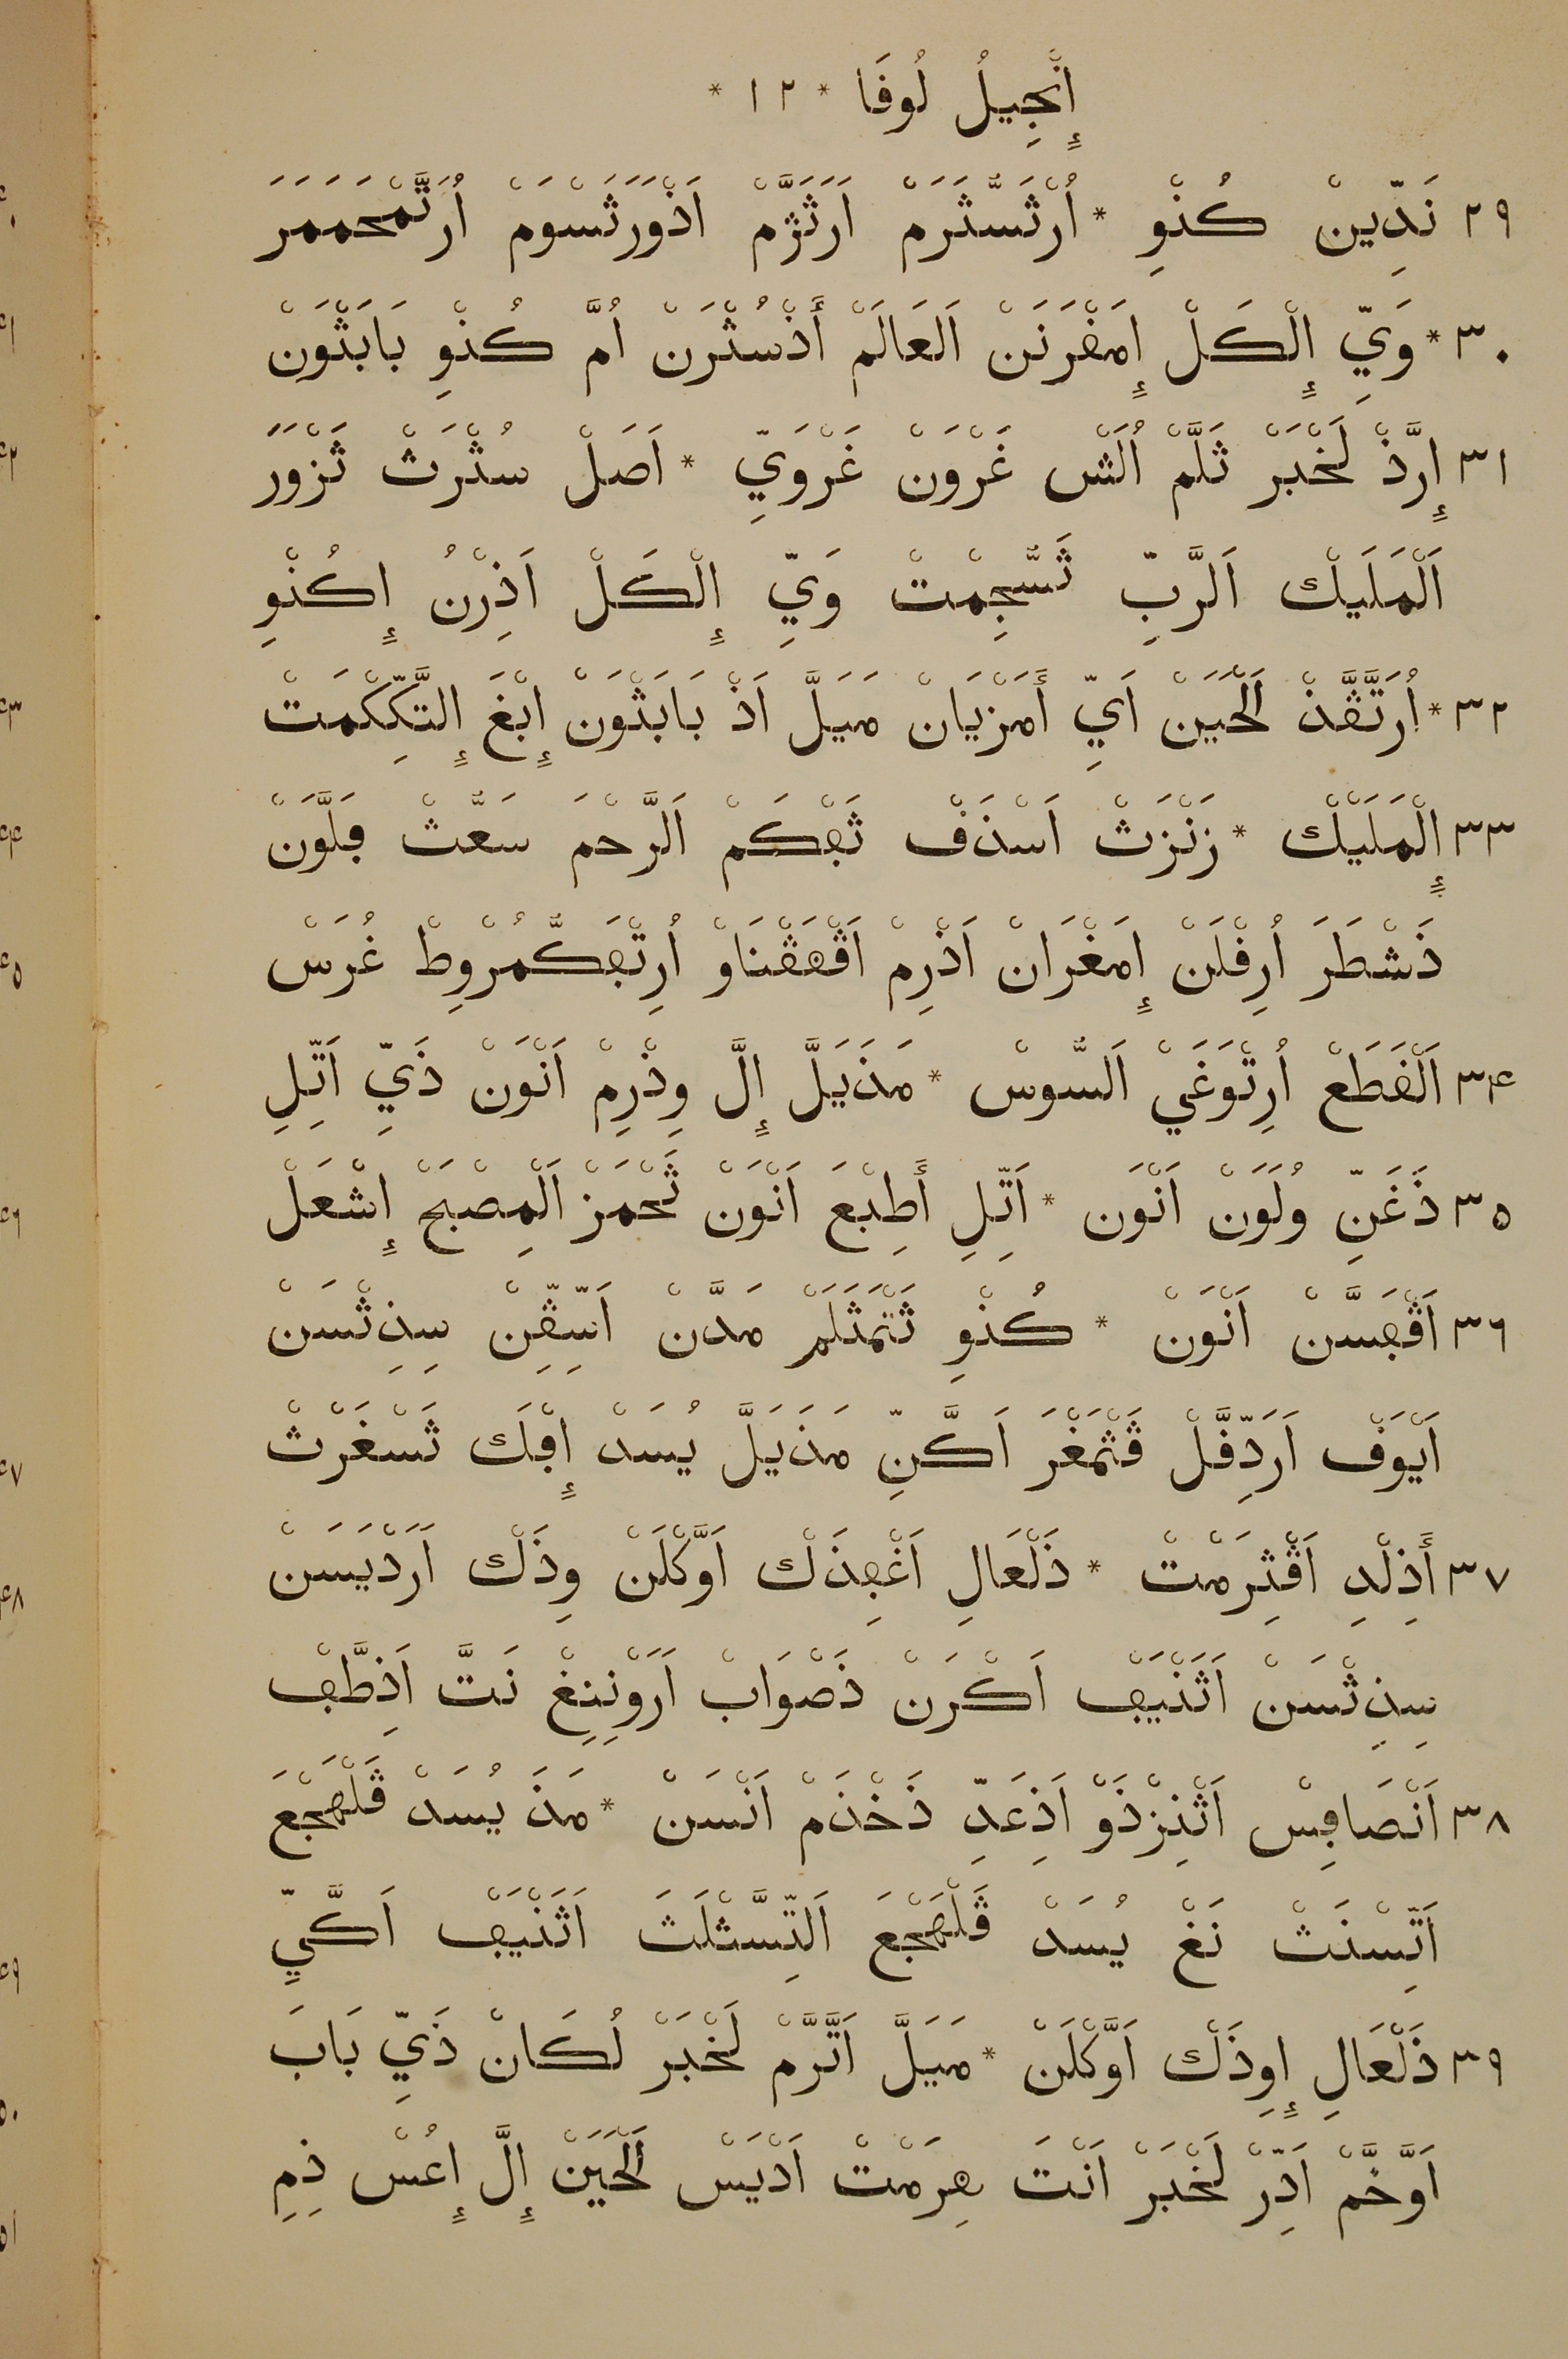 إِنْجِيلُ لُوقَا * ١٢ *
٢٩ نَدِّينْ كُنْوِ * اُرْثَسَّثَرَمْ اَرَثَژَّمْ اَذْوَرَثَسْوَمْ اُرَتَّمْحَمَمَرَ
٣٠ * وَيِّ إِلْكَلْ إِمَفْرَنَنْ اَلعَالَمْ أَذْسُثْرَنْ اُمَّ كُنْوِ بَابَثْوَنْ
٣١ إِرَّذْ لَخْبَرْ ثَلَّمْ اُلَشْ غَرْوَنْ غَرْوَيِّ * اَصَلْ سُثْرَثْ ثَزْوَرَ
اَلْمَلَيَلْكْ اَلرَّبِّ ثَسُّجِمْتْ وَيِّ إِلْكَلْ اَذِرْنُ إِكُنْوِ
٣٢ * اُرَتَّڤَّذْ اَلْحَيَنْ اَيِّ أَمَزْيَانْ مَيَلَّ اَذْ بَابَثْوَنْ إِبْغَ إِلتَّكِّكْمَتْ
٣٣ إِلْمَلَيَلْكْ * زَنْزَتْ اَسْذَفْ ثَفِكَمْ اَلرَّحْمَ سَعُّثْ فَلَّوَنْ
ذَشْطَرَ اُرِفْلَنْ إِمَغْرَانْ اَذْرِمْ اَڤْهَڤْنَاوْ اُرِتْفَكُّمُرْوِطْ غُرَسْ
٣٤ اَلْفَطَعْ اُرِتْوَغَيْ اَلسُّوسْ * مَذَيَلَّ إِلَّ وِذْرِمْ اَنْوَنْ ذَيِّ اَتِّلِ
٣٥ ذَغَنِّ وُلَوَنْ اَنْوَن * اَتِّلِ أَطِبْعَ اَنْوَنْ ثَحْمَزْ اَلْمِصْبَحْ إِشْعَلْ
٣٦ اَڤْفَسَّنْ اَنْوَنْ * كُنْوِ ثَتْمَثَلَمْ مَدَّنْ اَسِّڤِّنْ سِذِثْسَنْ
اَيْوَفْ اَرَدِّقَّلْ ڤَثْمَغْرَ اَكَّنِّ مَذَيَلَّ يُسَدْ إِفْكَ ثَسْغَرْثْ
٣٧ أَذِلْدِ اَڤْثِرَمْتْ * ذَلْعَالِ اَغْفِذَكْ اَوَّكْلَنْ وِذَكْ اَرَدْيَسَنْ
سِذِثْسَنْ اَثَنْيَفْ اَكْرَنْ ذَصْوَابْ اَرَوْنِنِغْ نَتَّ اَذِطَّفْ
٣٨ اَنْصَافِسْ اَثْنِزْذَوْ اَذِعَدِّ ذَخْذَمْ اَنْسَنْ * مَذَ يُسَدْ ڤَلْهَجْعَ
اَتِّسْنَثْ نَغْ يُسَدْ ڤَلْهَجْعَ اَلتِّسَّثْلَثَ اَثَنْيَفْ اَكَّيِّ
٣٩ ذَلْعَالِ إِوِذَكْ اَوَّكْلَنْ * مَيَلَّ اَتَّرَّمْ لَخْبَرْ لُكَانْ ذَيِّ بَابَ
اَوَّخَّمْ اَدِّرْ لَخْبَرْ اَنْتَ هِرَمْتْ اَدْيَسْ اَلْحَيَنْ إِلَّ إِعُسْ ذِمِ